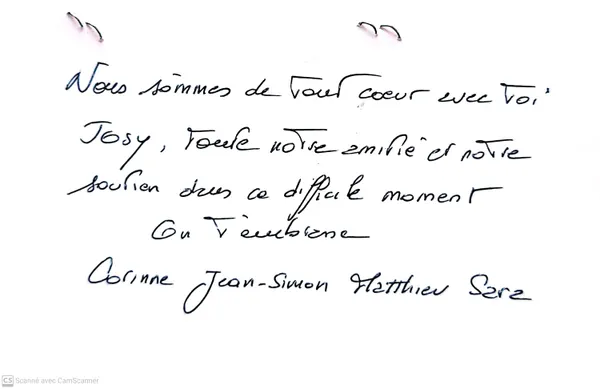 Nous sommes de tout coeur avec toi
Josy, toute notre amitié et notre
soutien dans ce difficile moment
On t'embrasse
Corinne Jean-Simon Matthieu Sara
CS Scanné avec CamScanner